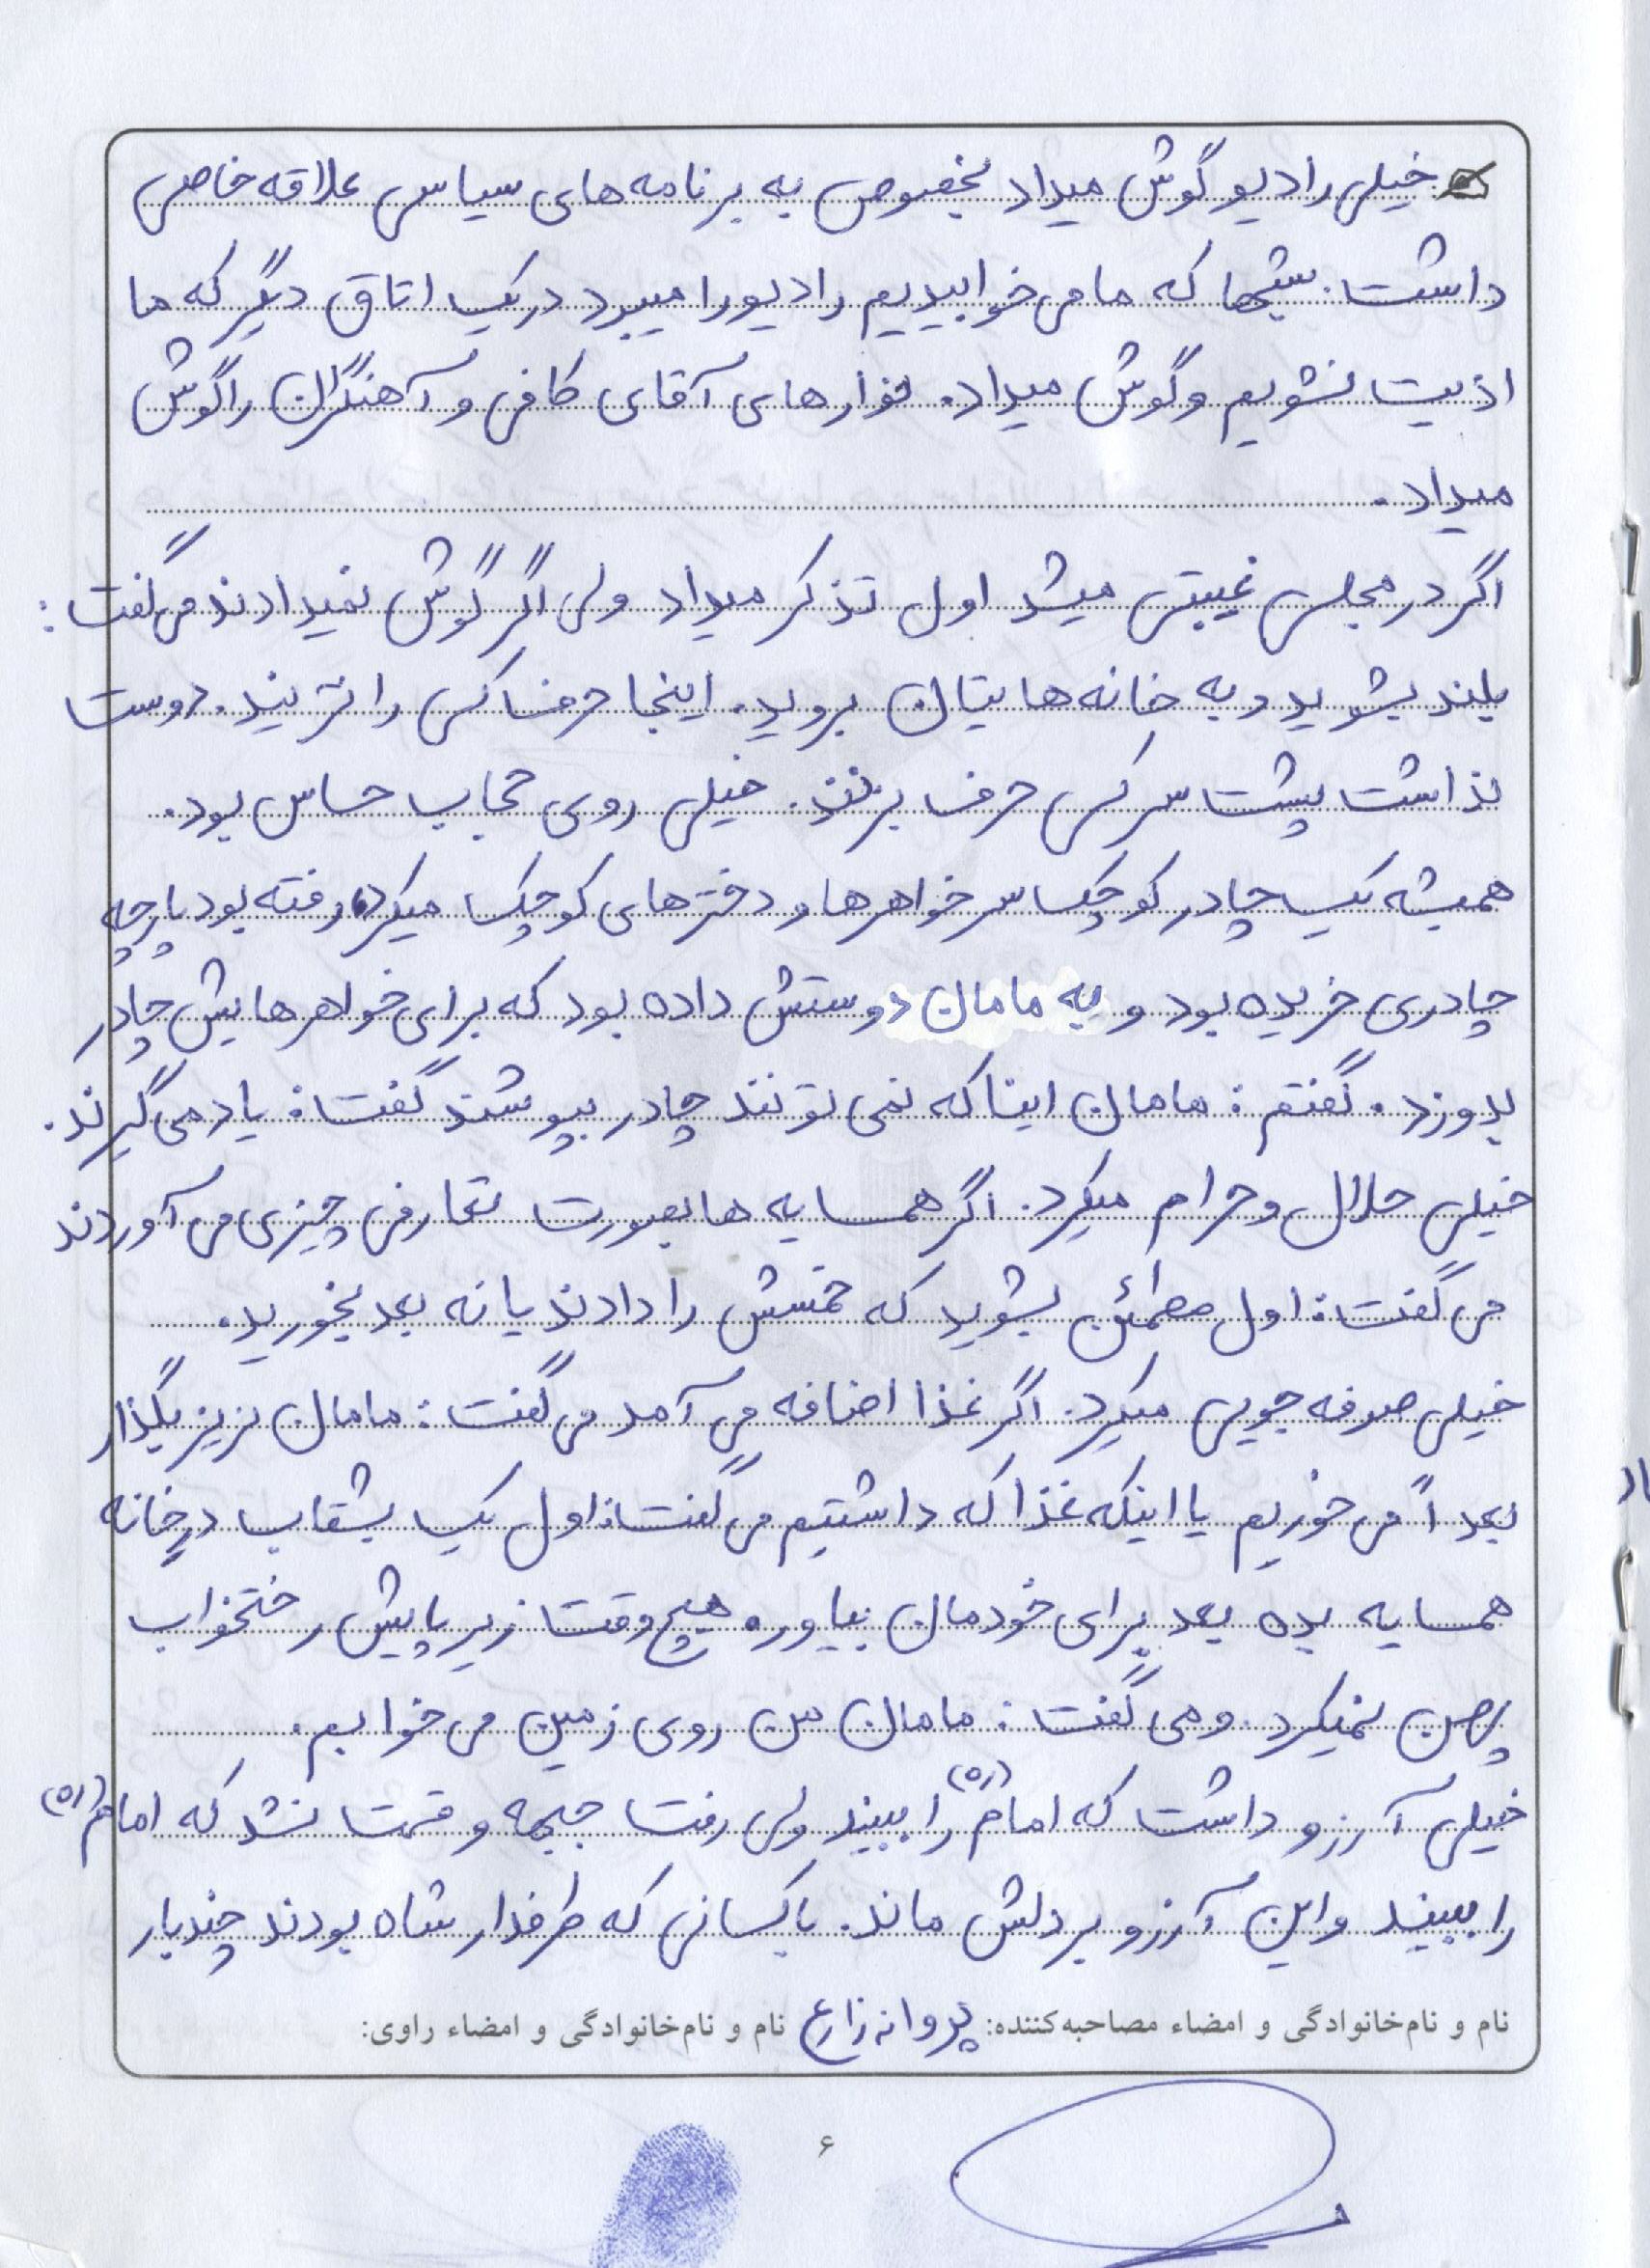 خیلی رادیو گوش میداد بخصوص به برنامه های سیاسی علاقه خاصی
داشت. شبها که ما می خوابیدیم رادیو را میبرد در یک اتاق دیگر که ما
اذیت نشویم و گوش میداد. نوارهای آقای کافی و آهنگران را گوش
میداد.
اگر در مجلسی غیبتی میشد اول تذکر میداد ولی اگر گوش نمیدادند می گفت:
بلند بشوید و به خانه هایتان بروید. اینجا حرف کسی را نزنید. دوست
نداشت پشت سر کسی حرف بزنند. خیلی روی حجاب حساس بود.
همیشه یک چادر کوچک سر خواهرها و دخترهای کوچک میکرد. رفته بود پارچه
چادری خریده بود و به مامان دوستش داده بود که برای خواهرهایش چادر
بدوزد. گفتم: مامان اینا که نمی تونند چادر بپوشند گفت: یاد می گیرند.
خیلی حلال و حرام میکرد. اگر همسایه ها بصورت تعارفی چیزی می آوردند
می گفت: اول مطمئن بشوید که خمسش را دادند یا نه بعد بخورید.
خیلی صرفه جویی میکرد. اگر غذا اضافه می آمد می گفت: مامان نریز بگذار
بعداً می خوریم یا اینکه غذا که داشتیم می گفت: اول یک بشقاب در خانه
همسایه بده بعد برای خودمان بیاور. هیچ وقت زیر پایش رختخواب
پهن نمیکرد. و می گفت: مامان من روی زمین می خوابم.
خیلی آرزو داشت که امام (ره) را ببیند ولی رفت جبهه و قسمت نشد که امام (ره)
را ببیند و این آرزو بر دلش ماند. با کسانی که طرفدار شاه بودند چند بار
نام و نام‌خانوادگی و امضاء مصاحبه‌کننده: پروانه زارع نام و نام‌خانوادگی و امضاء راوی:
۶